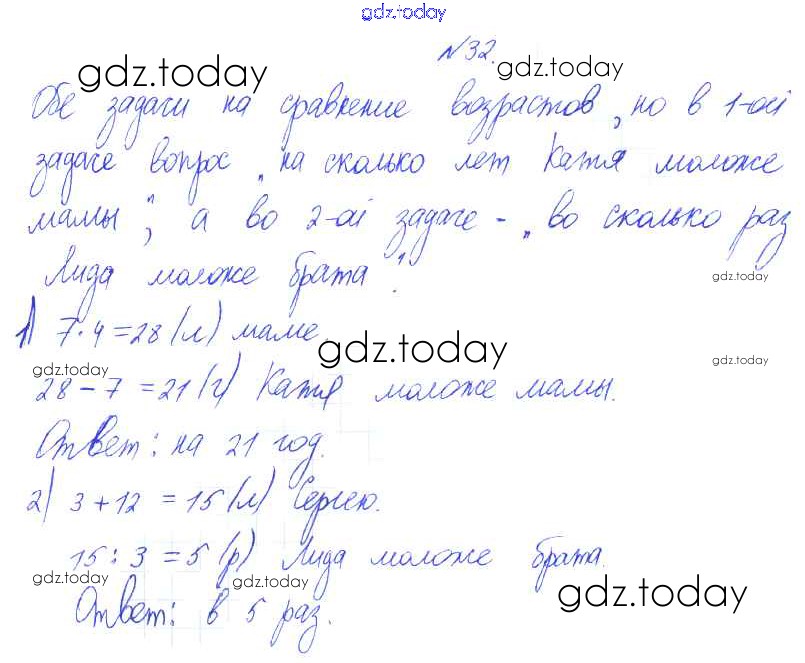 gdz.today
№32.
gdz.today gdz.today
Обе задачи на сравнение возрастов, но в 1-ой
задаче вопрос „на сколько лет Катя моложе
мамы", а во 2-ой задаче - „во сколько раз
Лида моложе брата".
gdz.today
1) 7·4=28(л) маме.
gdz.today
gdz.today
gdz.today
28-7=21(г) Катя моложе мамы.
Ответ: на 21 год.
2) 3+12=15(л) Сергею.
15:3=5(р) Лида моложе брата.
gdz.today gdz.today gdz.today
Ответ: в 5 раз.